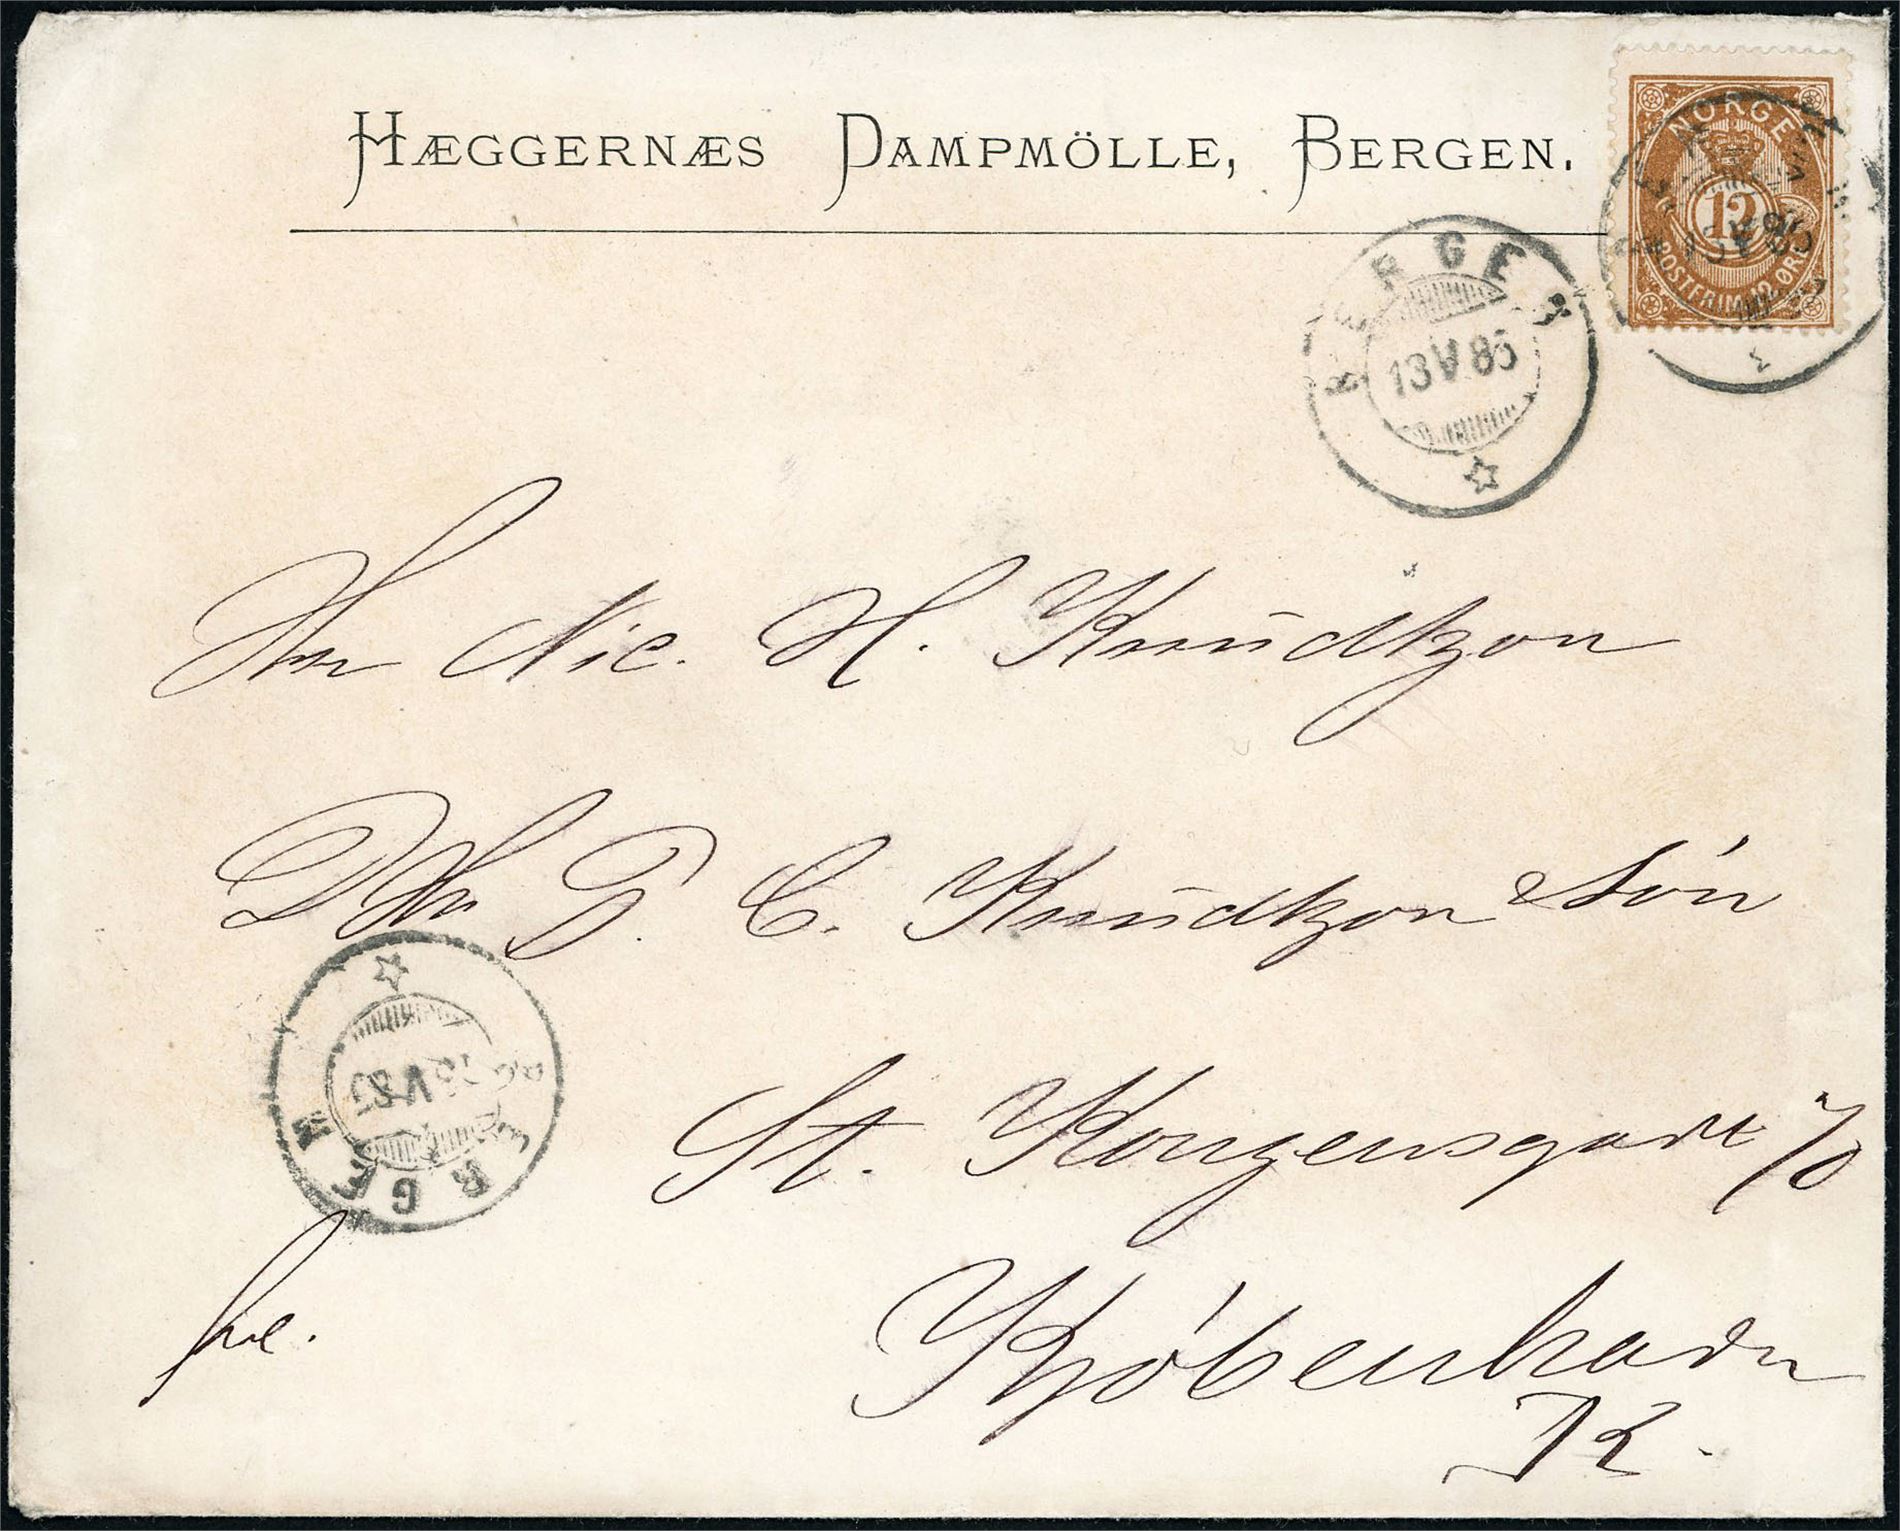 HÆGGERNÆS DAMPMÖLLE, BERGEN.
NORGE
12
POSTFRIM. 12 ØRE
BERGEN
13 V 85
Herr Nic. H. Knudtzon
DHr G. C. Knudtzon & Sön
St. Kongensgade 70
BERGEN
13 V 85
Kjöbenhavn
K.